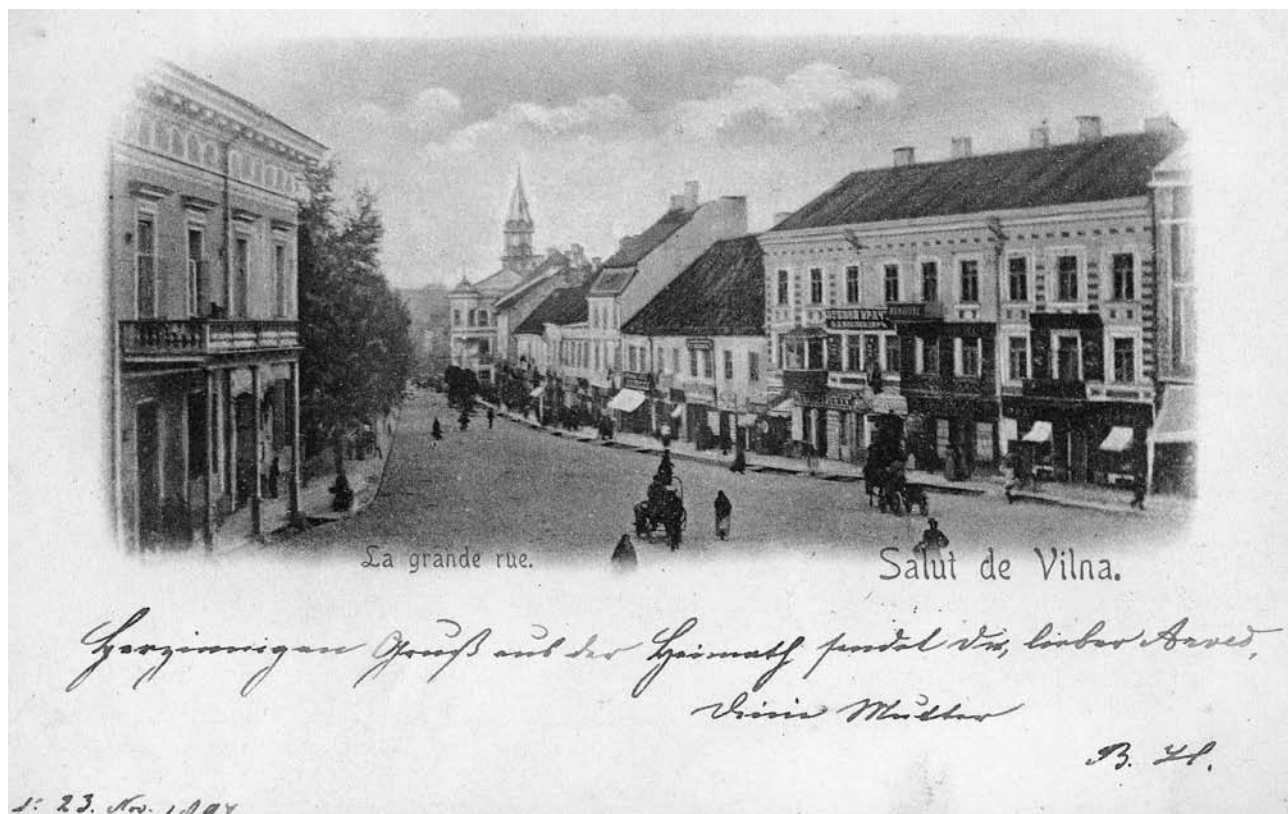 ЗУБНОЙ ВРАЧЪ
La grande rue.
Salut de Vilna.
Herzinnigen Gruß aus der Heimath sendet Dir, lieber Arved,
Deine Mutter
B. H.
d: 23. Nov. 1897